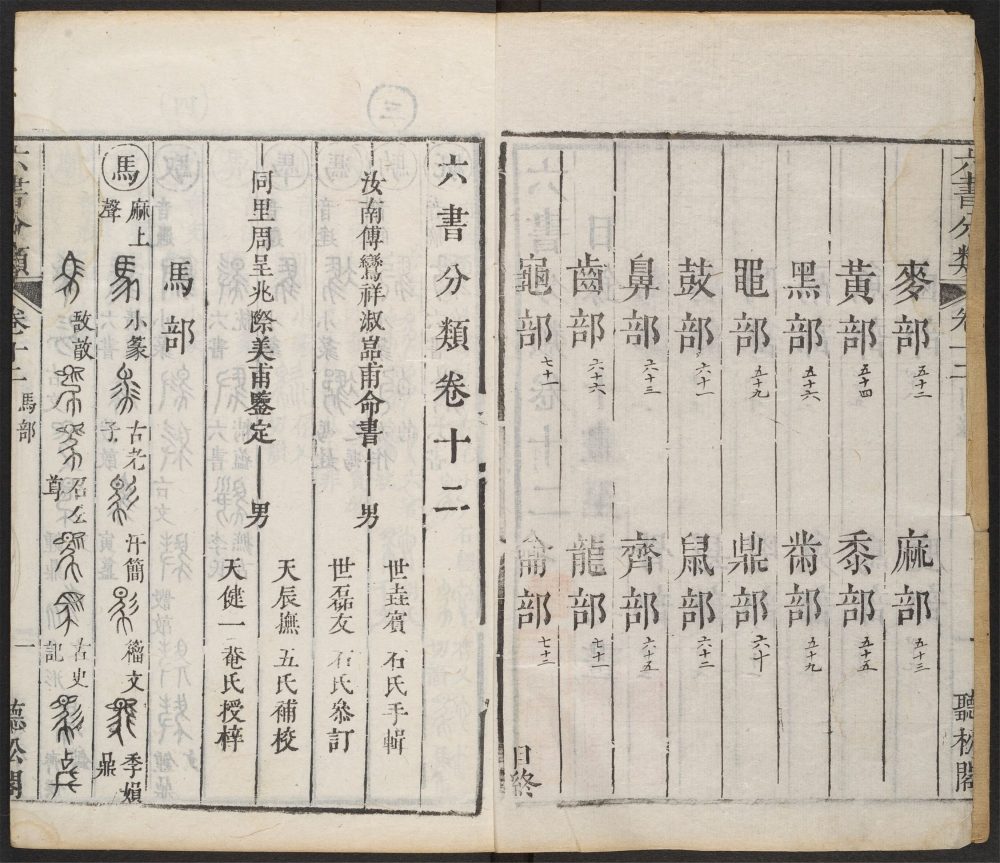 六書分類 卷十二
聽松閣
麥部 五十二 麻部 五十三
黃部 五十四 黍部 五十五
黑部 五十六 黹部 五十九
黽部 五十九 鼎部 六十
鼓部 六十一 鼠部 六十二
鼻部 六十三 齊部 六十五
齒部 六十六 龍部 七十一
龜部 七十二 龠部 七十三
目終
六書分類卷十二
汝南傅鸞祥淑嵓甫命書 男 世垚賓石氏手輯
世磊友石氏叅訂
同里周呈兆際美甫鑒定 男 天辰撫五氏補校
天健一菴氏授梓
馬部
馬 麻上聲 小篆 古老子 汗簡 籀文 季娟鼎
敔敦 召尊 古史記
六書分類 卷十二 馬部 一 聽松閣
三